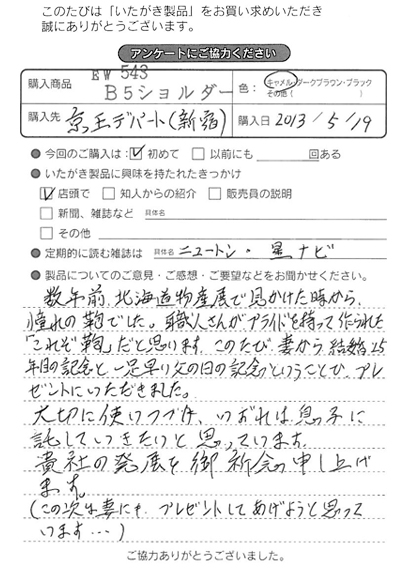 このたびは「いたがき製品」をお買い求めいただき
誠にありがとうございます。
アンケートにご協力ください
購入商品 EW 543 B5ショルダー 色: キャメル・ダークブラウン・ブラック その他( )
購入先 京王デパート(新宿) 購入日 2013/5/19
● 今回のご購入は: ☑ 初めて □ 以前にも 回ある
● いたがき製品に興味を持たれたきっかけ
☑ 店頭で □ 知人からの紹介 □ 販売員の説明
□ 新聞、雑誌など 具体名
□ その他
● 定期的に読む雑誌は 具体名 ニュートン・星ナビ
● 製品についてのご意見・ご感想・ご要望などをお聞かせください。
数年前、北海道物産展で見かけた時から、
憧れの鞄でした。職人さんがプライドを持って作られた
「これぞ鞄」だと思います。このたび、妻から結婚25
年目の記念と一足早い父の日の記念ということで、プレ
ゼントにいただきました。
大切に使いつづけ、いずれは息子に
託していきたいと思っています。
貴社の発展を御祈念申し上げ
ます。
(この次は妻にも、プレゼントしてあげようと思って
います…)
ご協力ありがとうございました。